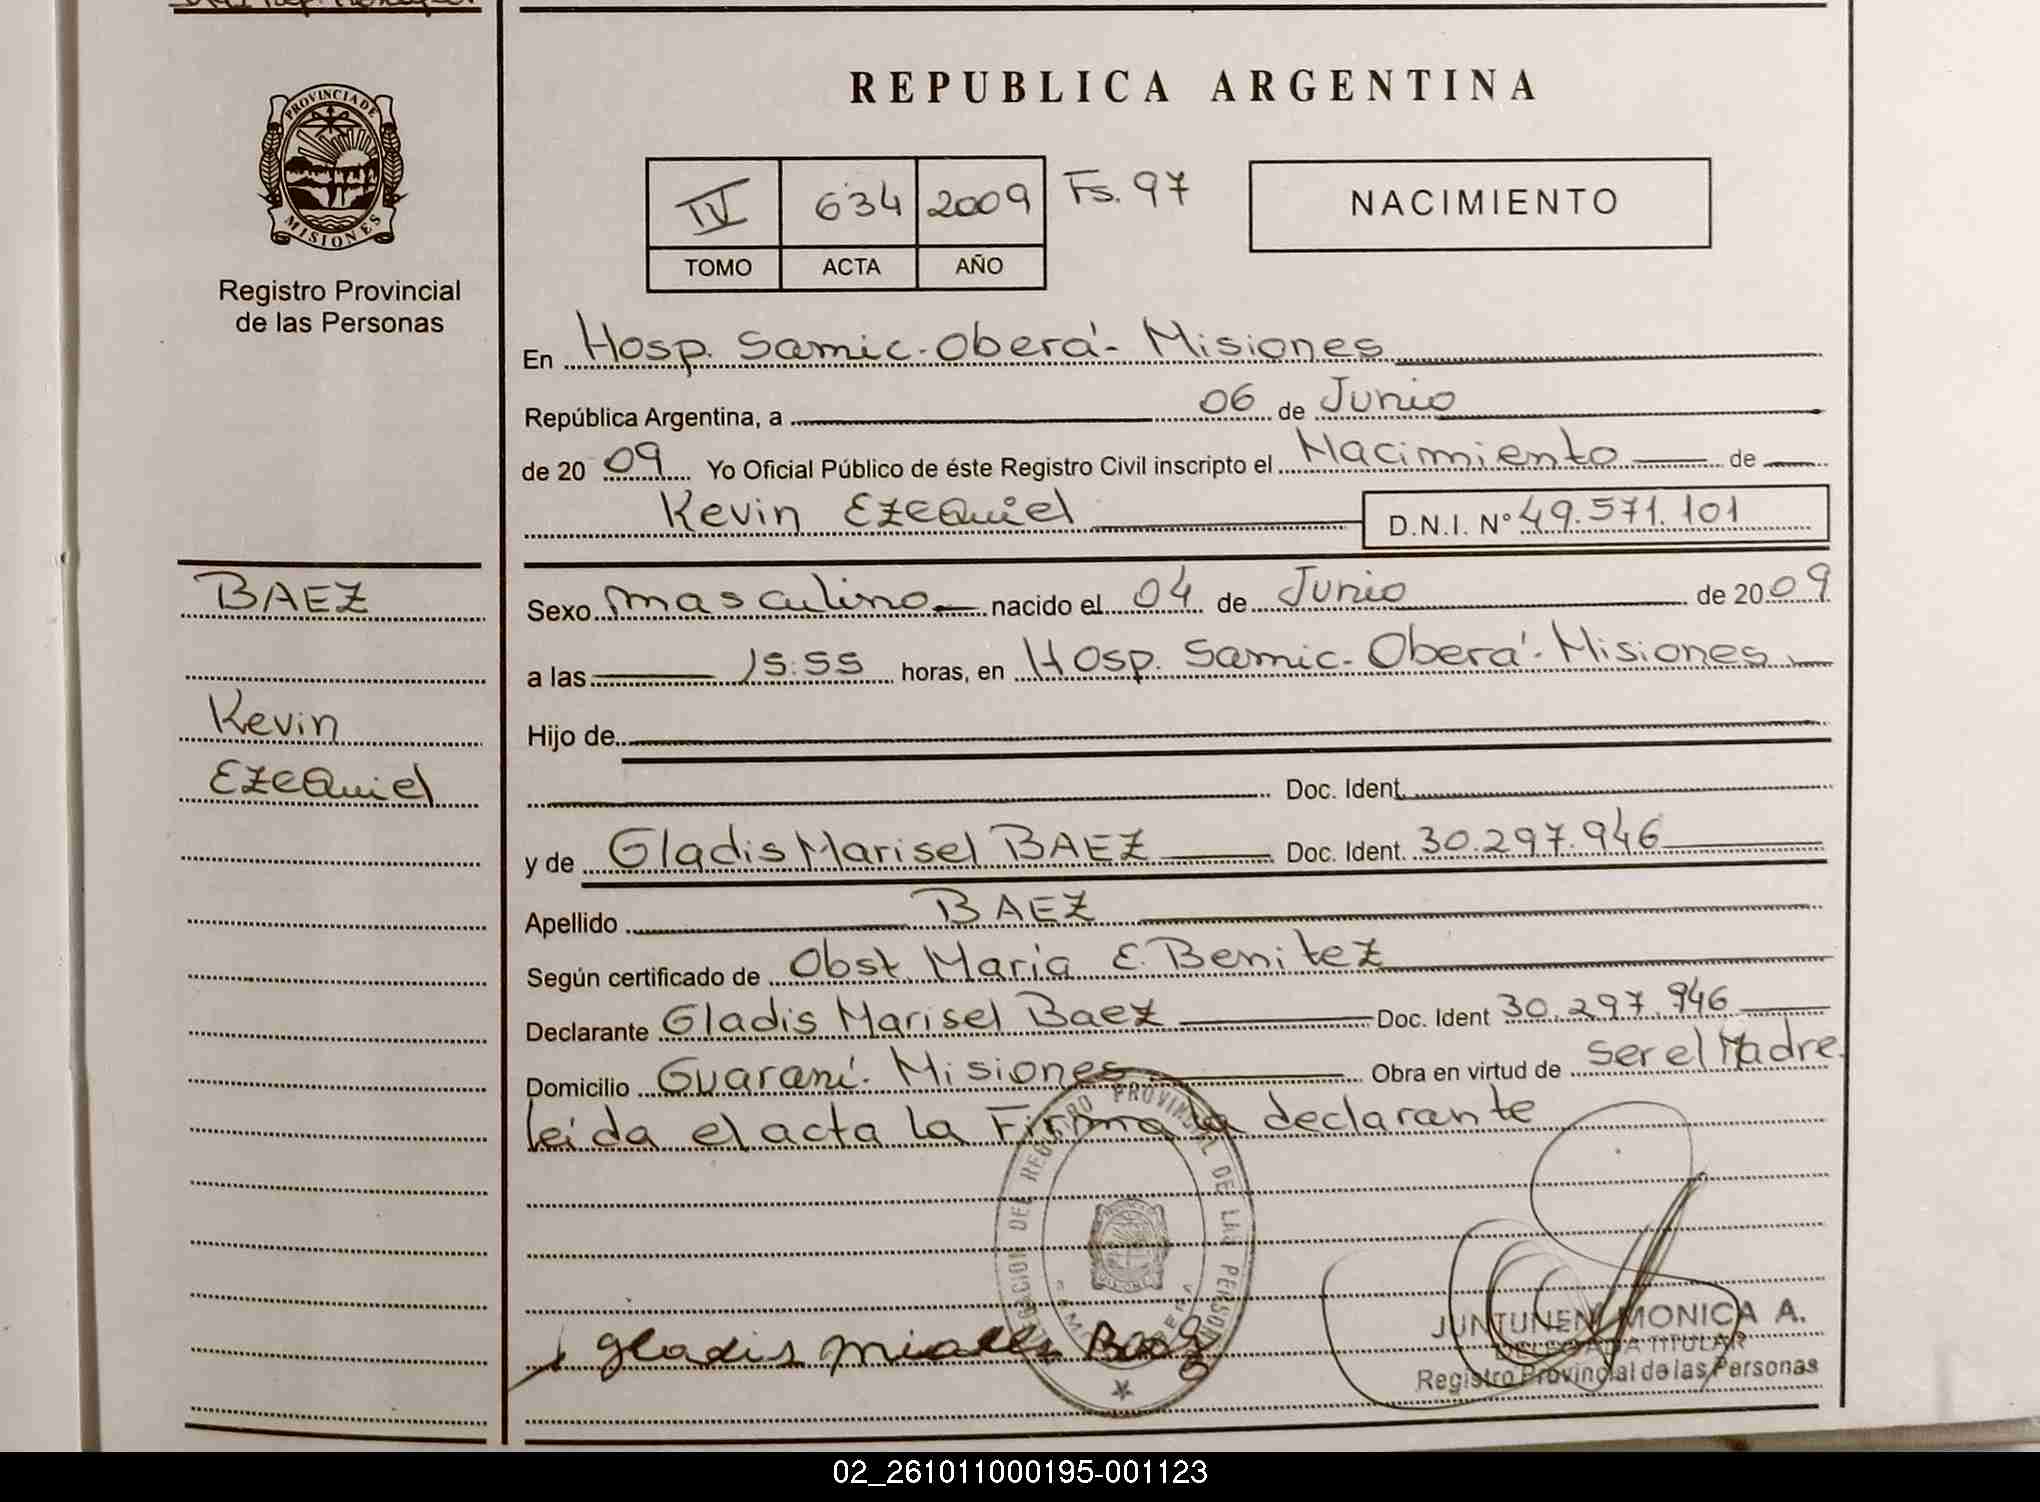 PROVINCIA DE
MISIONES
Registro Provincial
de las Personas
BAEZ
Kevin
Ezequiel
REPUBLICA ARGENTINA
IV 634 2009 Fs. 97
TOMO ACTA AÑO
NACIMIENTO
En Hosp. Samic - Oberá - Misiones
República Argentina, a 06 de Junio
de 20 09 Yo Oficial Público de éste Registro Civil inscripto el Nacimiento de
Kevin Ezequiel D.N.I. N° 49.571.101
Sexo masculino nacido el 04 de Junio de 2009
a las 15:55 horas, en Hosp. Samic - Oberá - Misiones
Hijo de
Doc. Ident.
y de Gladis Marisel BAEZ Doc. Ident. 30.297.946
Apellido BAEZ
Según certificado de Obst. Maria E. Benitez
Declarante Gladis Marisel Baez Doc. Ident 30.297.946
Domicilio Guaraní - Misiones Obra en virtud de ser el Madre.
leída el acta la Firma la declarante
REGISTRO PROVINCIAL DE LAS PERSONAS
gladis Baez
JUNTUNEN MONICA A.
DELEGADA TITULAR
Registro Provincial de las Personas
02_261011000195-001123